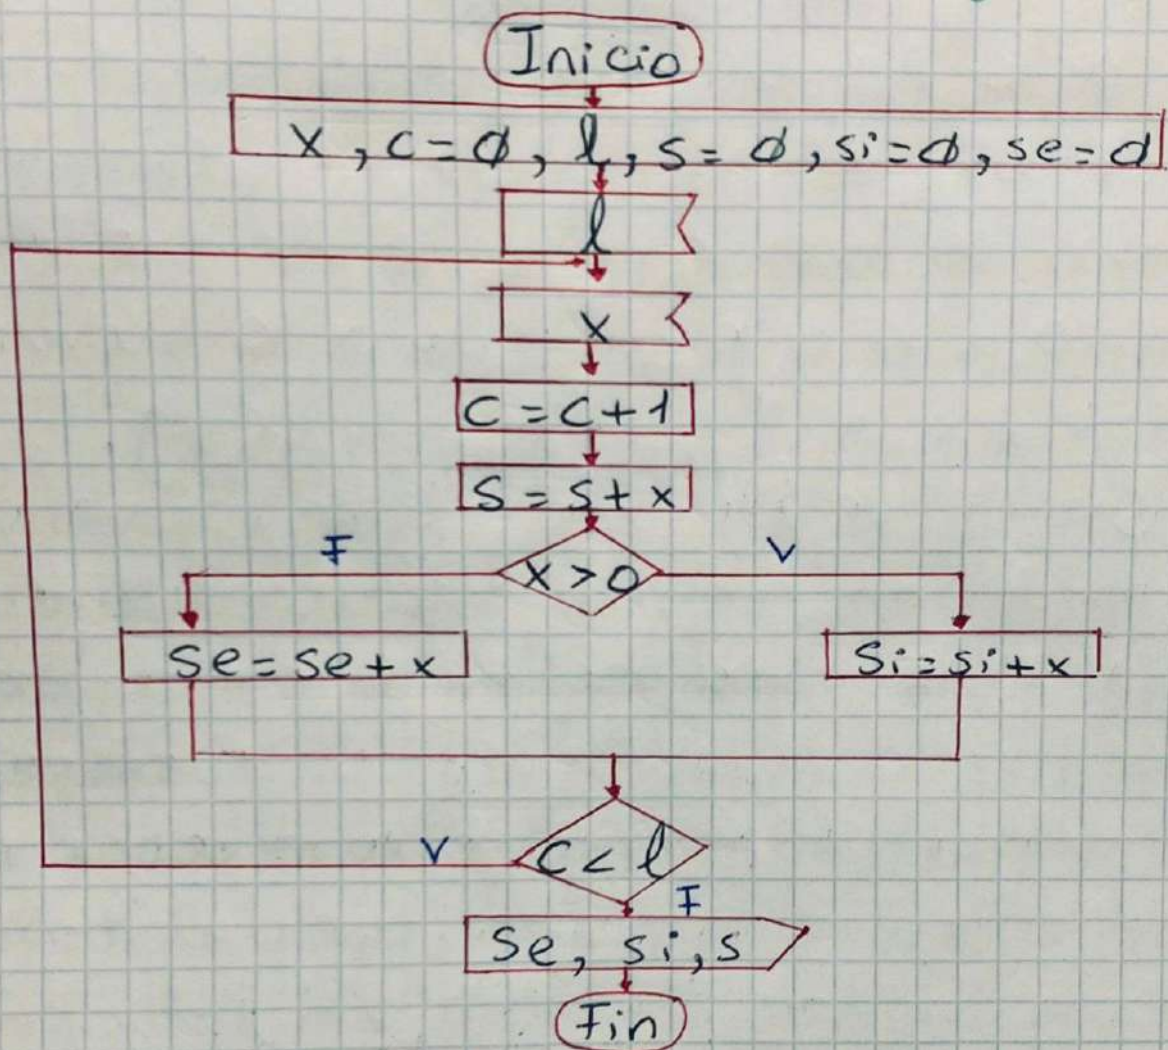 Inicio
x, c=0, l, s=0, si=0, se=0
l
x
C=C+1
S=s+x
F
x>0
V
Se=se+x
Si=si+x
V
C<l
F
Se, si, s
Fin